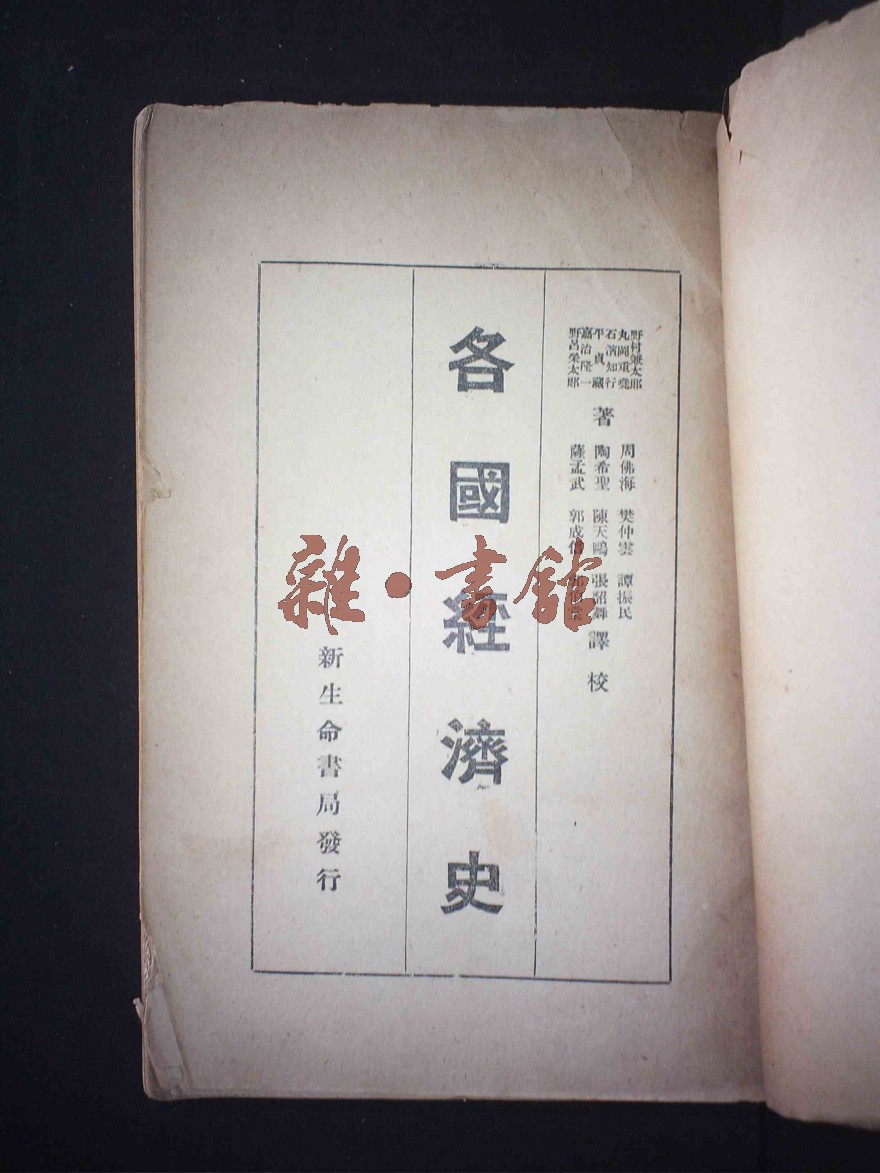 野村兼太郎
丸岡重堯
石濱知行
平貞藏
嘉治隆一
野呂榮太郎
著
周佛海 樊仲雲 譚振民
陶希聖 陳天鷗 張韶舞
薩孟武 郭成
譯校
各國經濟史
新生命書局發行
雜·書館